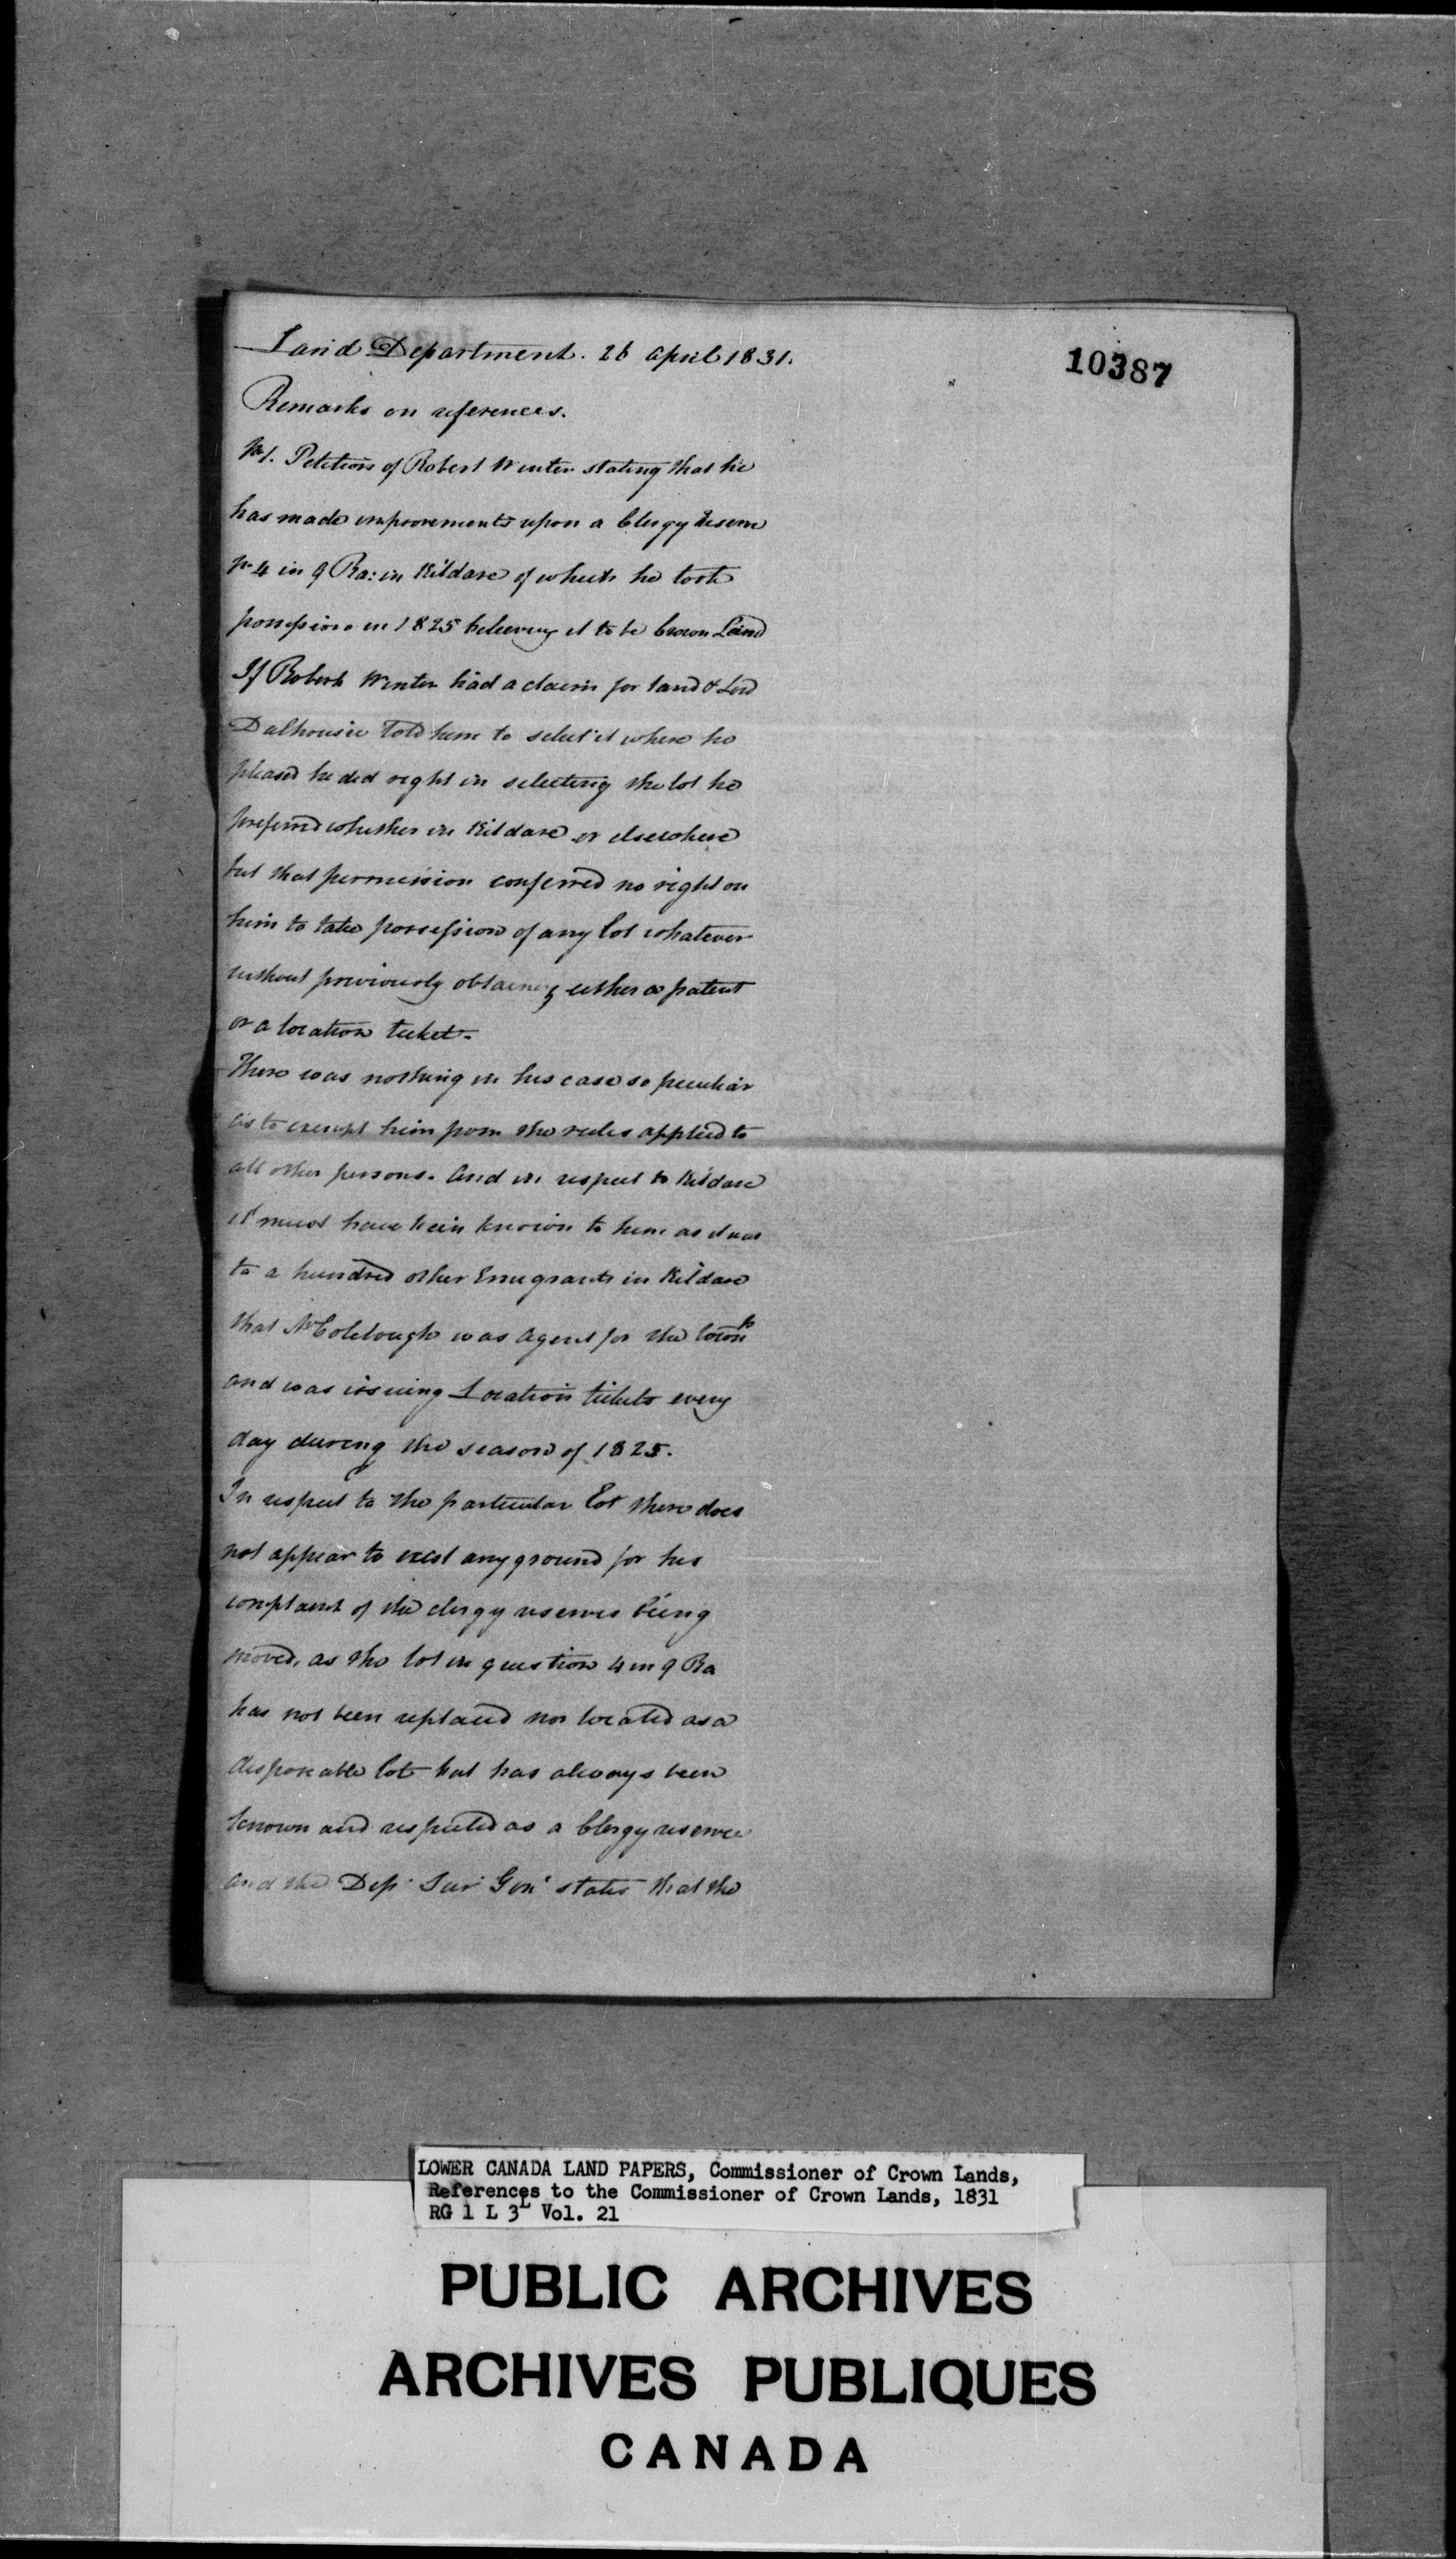 Land Department. 26 April 1831.
10387
Remarks on references.
No 1. Petition of Robert Winter stating that he
has made improvements upon a Clergy Reserve
No 4 in 9 Ra: in Kildare of which he took
possession in 1825 believing it to be Crown Land
If Robert Winter had a claim for land & Lord
Dalhousie told him to select it where he
pleased he did right in selecting the lot he
preferred whether in Kildare or elsewhere
but that permission conferred no right on
him to take possession of any lot whatever
without previously obtaining either a patent
or a location ticket.
There was nothing in his case so peculiar
as to exempt him from the rules applied to
all other persons. And in respect to Kildare
it must have been known to him as it was
to a hundred other Emigrants in Kildare
that Mr Colclough was Agent for the Townp
and was issuing Location tickets every
day during the season of 1825.
In respect to the particular Lot there does
not appear to exist any ground for his
complaint of the clergy reserves being
moved, as the lot in question 4 in 9 Ra
has not been replaced nor located as a
disposeable lot but has always been
known and respected as a Clergy reserve
and the Dep. Sur. Gen. states that the
LOWER CANADA LAND PAPERS, Commissioner of Crown Lands,
References to the Commissioner of Crown Lands, 1831
RG 1 L 3L Vol. 21
PUBLIC ARCHIVES
ARCHIVES PUBLIQUES
CANADA